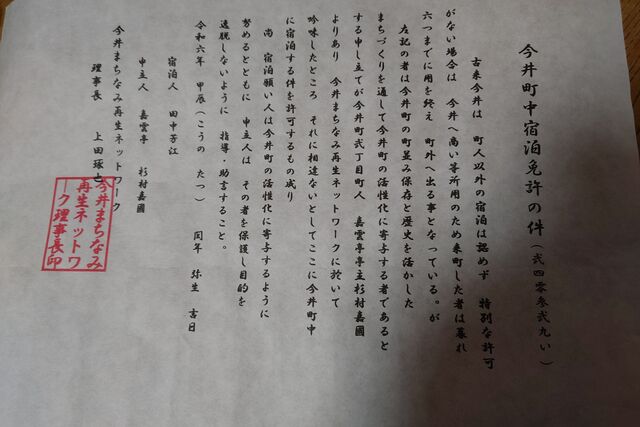 今井町中宿泊免許の件(弐四零参弐九い)
古来今井は 町人以外の宿泊は認めず 特別な許可
がない場合は 今井へ商い等所用のため来町した者は暮れ
六つまでに用を終え 町外へ出る事となっている。が
左記の者は今井町の町並み保存と歴史を活かした
まちづくりを通して今井町の活性化に寄与する者であると
する申し立てが今井町弐丁目町人 嘉雲亭亭主杉村嘉國
よりあり 今井まちなみ再生ネットワークに於いて
吟味したところ それに相違ないとしてここに今井町中
に宿泊する件を許可するもの成り
尚 宿泊願い人は今井町の活性化に寄与するように
努めるとともに 申立人は その者を保護し目的を
逸脱しないように 指導・助言すること。
令和六年 甲辰(こうの たつ) 同年 弥生 吉日
宿泊人 田中芳江
申立人 嘉雲亭 杉村嘉國
今井まちなみ再生ネットワーク
理事長 上田琢也
今井まちなみ
再生ネットワ
ーク理事長印